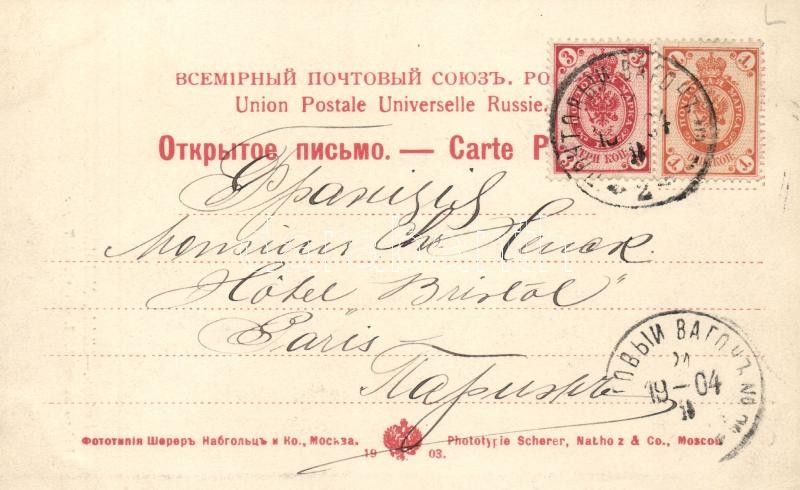 ВСЕМІРНЫЙ ПОЧТОВЫЙ СОЮЗЪ. РО
Union Postale Universelle Russie.
Открытое письмо. — Carte P
3 3
ТРИ КОП.
1 1
1 КОП. 1
Франція
Monsieur Ch.
Hôtel Bristol"
Paris
Парижъ
ОВЫЙ ВАГОНЪ №
21
19-04
Фототипія Шереръ Набгольцъ и Ко., Москва.
1903.
Phototypie Scherer, Natholz & Co., Moscou